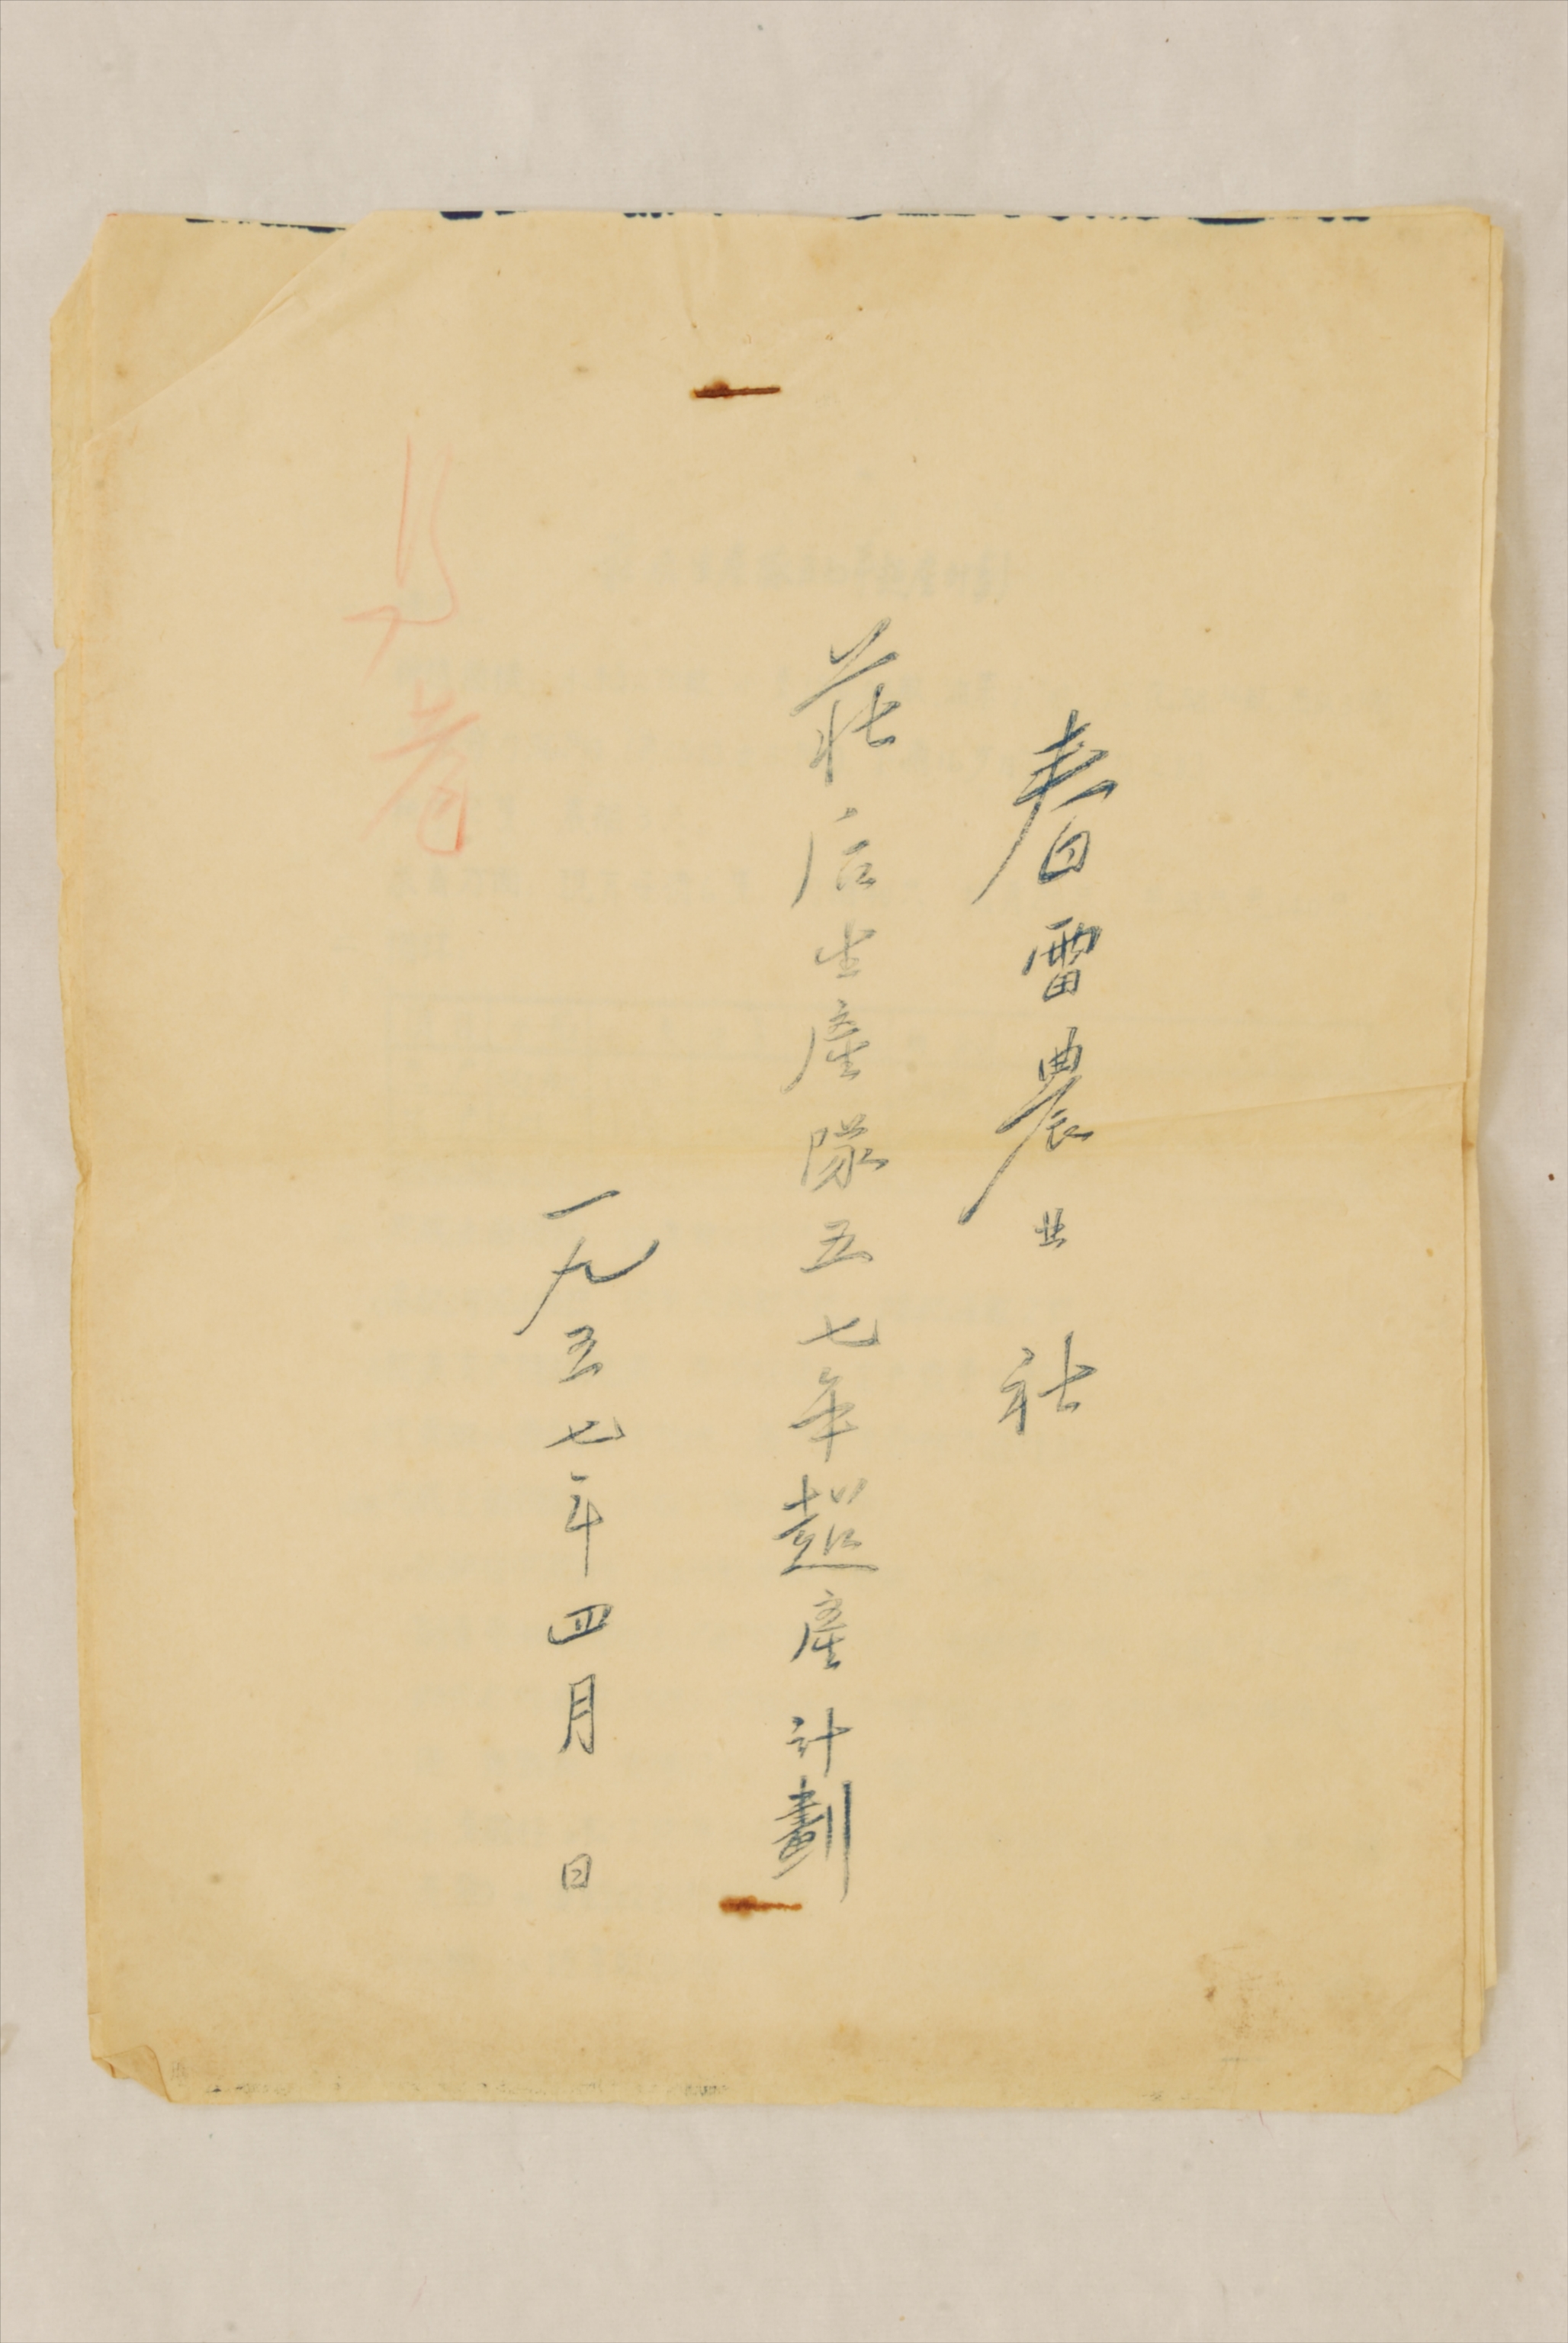 春雷農业社
莊后生產隊五七年超產計劃
一九五七年四月 日